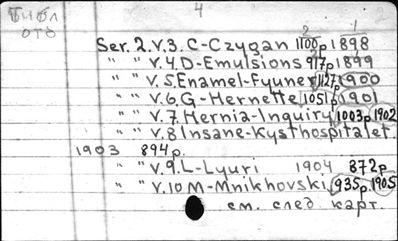 4
библ
ото
2 1
Ser. 2. v.3. C-Czygan 1100p 1898
" " v.4. D-Emulsions 917p 1899
" " v.5. Enamel-Fyuner 1127p 1900
" " v.6. G-Hernette 1051p 1901
" " v.7. Hernia-Inquiry 1003p 1902
" " v.8 Insane-Kysthospitalet.
1903 894p.
" " v.9. L-Lyuri 1904 872p
" " v.10 M-Mnikhovski 935p. 1905
см. след карт.